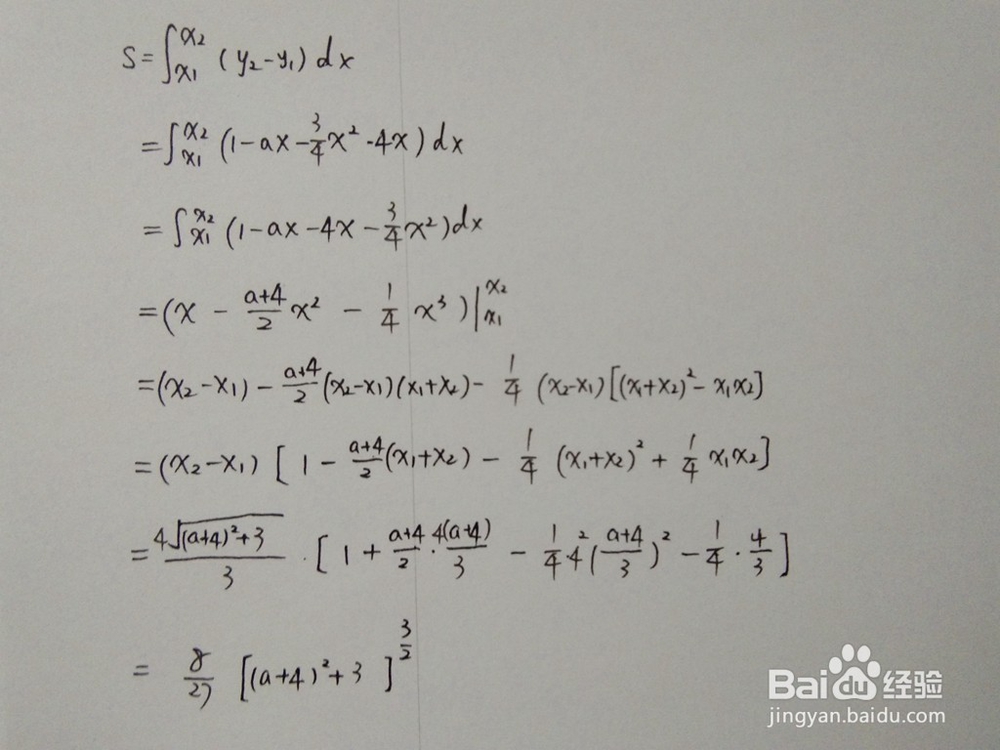 S=∫_{x1}^{x2} (y₂-y₁) dx
=∫_{x1}^{x2} (1-ax-\frac{3}{4}x²-4x) dx
=∫_{x1}^{x2} (1-ax-4x-\frac{3}{4}x²)dx
=(x - \frac{a+4}{2}x² - \frac{1}{4} x³)|_{x1}^{x2}
=(x₂-x₁) - \frac{a+4}{2}(x₂-x₁)(x₁+x₂) - \frac{1}{4} (x₂-x₁)[(x₁+x₂)²-x₁x₂]
=(x₂-x₁) [1 - \frac{a+4}{2}(x₁+x₂) - \frac{1}{4} (x₁+x₂)² + \frac{1}{4} x₁x₂]
= \frac{4\sqrt{(a+4)²+3}}{3} · [1 + \frac{a+4}{2} · \frac{4(a+4)}{3} - \frac{1}{4}4²(\frac{a+4}{3})² - \frac{1}{4} · \frac{4}{3}]
= \frac{8}{27} [(a+4)²+3]^{\frac{3}{2}}
Baidu经验
jingyan.baidu.com